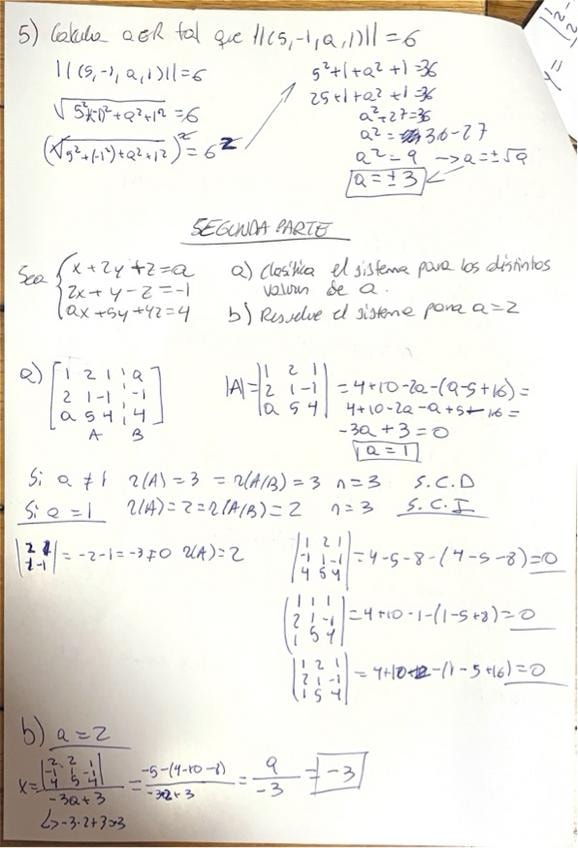 5) Calcula a∈R tal que ||(5,-1,a,1)|| = 6
||(5,-1,a,1)|| = 6
√5²+(-1)²+a²+1² = 6
(√5²+(-1)²+a²+1²)² = 6²
5²+1+a²+1=36
25+1+a²+1=36
a²+27=36
a²= 36-27
a²=9 → a=±√9
a=±3
SEGUNDA PARTE
Sea { x+2y+z=a
2x+y-z=-1
ax+5y+4z=4
a) Clasifica el sistema para los distintos
valores de a.
b) Resuelve el sistema para a=2
a) [1 2 1 | a
2 1 -1 | -1
a 5 4 | 4]
A B
|A| = |1 2 1
2 1 -1
a 5 4| = 4+10-2a-(a-5+16)=
4+10-2a-a+5-16=
-3a+3=0
a=1
Si a≠1 r(A)=3=r(A/B)=3 n=3 S.C.D
Si a=1 r(A)=2=r(A/B)=2 n=3 S.C.I
|2 1
1 -1| = -2-1=-3≠0 r(A)=2
|1 2 1
-1 1 -1
4 5 4| = 4-5-8-(4-5-8)=0
|1 1 1
2 1 -1
1 5 4| = 4+10-1-(1-5+8)=0
|1 2 1
2 1 -1
1 5 4| = 4+10-2-(1-5+16)=0
b) a=2
x= |2 2 1
-1 1 -1
4 5 4|
-3a+3
↳ -3·2+3=3
= -5-(4-10-8)
-3·2+3
= 9
-3
= -3